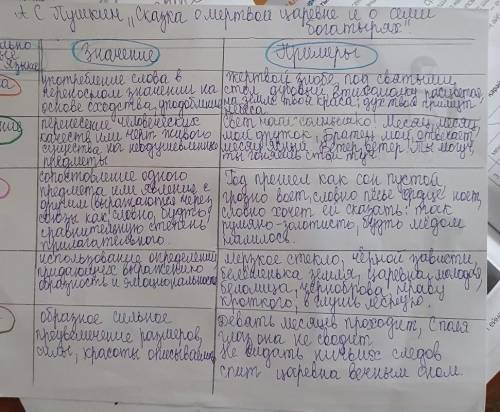 А С Пушкин "Сказка о мертвой царевне и о семи
богатырях"
Значение
Примеры
употребление слова в
переносном значении на
основе сходства, уподоблении
жертвой злобе, под святыми,
стол дубовый, втихомолку расцветая,
на земле твоя краса; дух твой примут
небеса.
перенесение человеческих
качеств или черт живого
существа на неодушевленные
предметы
Свет наш солнышко! Месяц, месяц,
мой дружок, Братец мой, отвечает,
месяц ясный, Ветер, ветер! Ты могуч,
ты гоняешь стаи туч.
сопоставление одного
предмета или явление с
другим (выражаются через
союзы как, словно, будто)
сравнительную степень
прилагательного.
Год прошел как сон пустой,
грозно воет, словно песье сердце ноет,
словно хочет ей сказать: так
румяно-золотисто, будто мёдом
налилось.
использование определений
придающих выражению
образность и эмоциональность
мерзкое стекло, чёрной зависти,
белешенька земля, царевна молодая,
белолица, черноброва, нраву
кроткого,
образное сильное
преувеличение размеров,
силы, красоты описываемого
Девять месяцев проходит, С поля
глаз она не сводит
Не видать ничьих следов
спит царевна вечным сном.